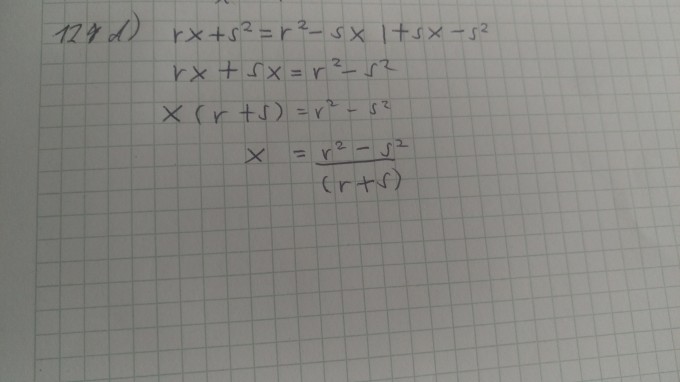 124 d) rx + s² = r² - sx | + sx - s²
rx + sx = r² - s²
x (r + s) = r² - s²
x = r² - s²
(r + s)